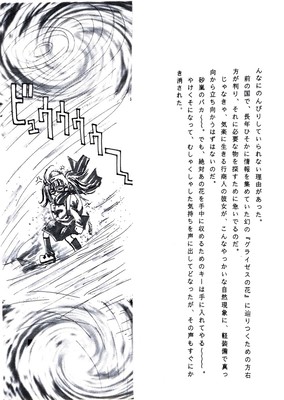 んなにのんびりしていられない理由があった。
前の国で、長年ひそかに情報を集めていた幻の『グライゼスの花』に辿りつくための方右
方が判り、それに必要な物を探すために急いでるのだ。
じゃなきゃ、気楽に生きる行商人の彼女が、こんなやっかいな自然現象に、軽装備で真っ
向から立ち向かうはずはないのだ。
砂嵐のバカ〜〜。でも、絶対あの花を手中に収めるためのキーは手に入れてやる〜〜〜。
やけくそになって、むしゃくしゃした気持ちを声に出してどなったが、その声もすぐにか
き消された。
ビュウウウウ